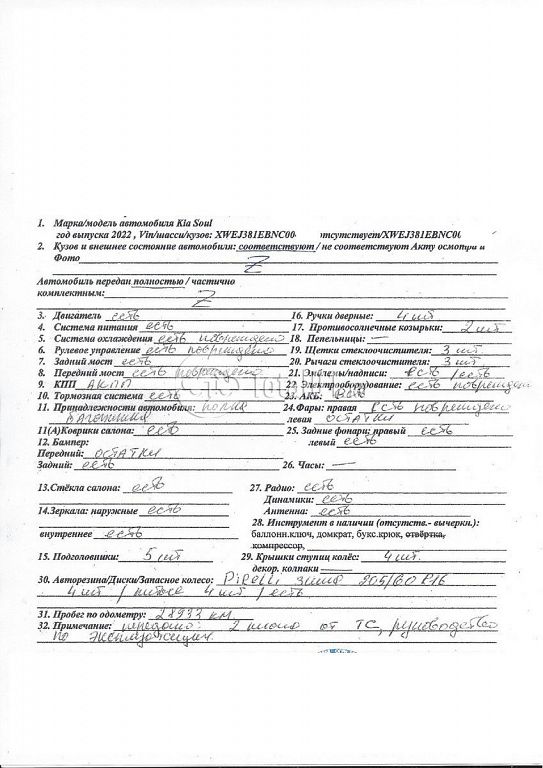 1. Марка/модель автомобиля Kia Soul
год выпуска 2022 , Vin/шасси/кузов: XWEJ381EBNC00 отсутствует/XWEJ381EBNC00
2. Кузов и внешнее состояние автомобиля: соответствуют / не соответствуют Акту осмотра и
Фото Z
Автомобиль передан полностью / частично
комплектным: Z
3. Двигатель есть 16. Ручки дверные: 4 шт
4. Система питания есть 17. Противосолнечные козырьки: 2 шт
5. Система охлаждения есть повреждено 18. Пепельницы: —
6. Рулевое управление есть повреждено 19. Щетки стеклоочистителя: 3 шт
7. Задний мост есть 20. Рычаги стеклоочистителя: 3 шт
8. Передний мост есть повреждено 21. Эмблемы/надписи: есть /есть
9. КПП АКПП 22. Электрооборудование: есть повреждены
10. Тормозная система есть 23. АКБ: есть
11. Принадлежности автомобиля: полка 24.Фары: правая есть повреждено
багажника левая остатки
11(А)Коврики салона: есть 25. Задние фонари: правый есть
12. Бампер: левый есть
Передний: остатки
Задний: есть 26. Часы: —
13.Стёкла салона: есть 27. Радио: есть
Динамики: есть
14.Зеркала: наружные есть Антенна: есть
28. Инструмент в наличии (отсутств.- вычеркн.):
внутреннее есть баллонн.ключ, домкрат, букс.крюк, отвёртка,
компрессор,
15. Подголовники: 5 шт 29. Крышки ступиц колёс: 4 шт.
декор. колпаки —
30. Авторезина/Диски/Запасное колесо: Pirelli зима 205/60 R16
4 шт / литые 4 шт / есть
31. Пробег по одометру: 28933 км
32. Примечание: передано: 2 ключа от ТС, руководство
по эксплуатации.